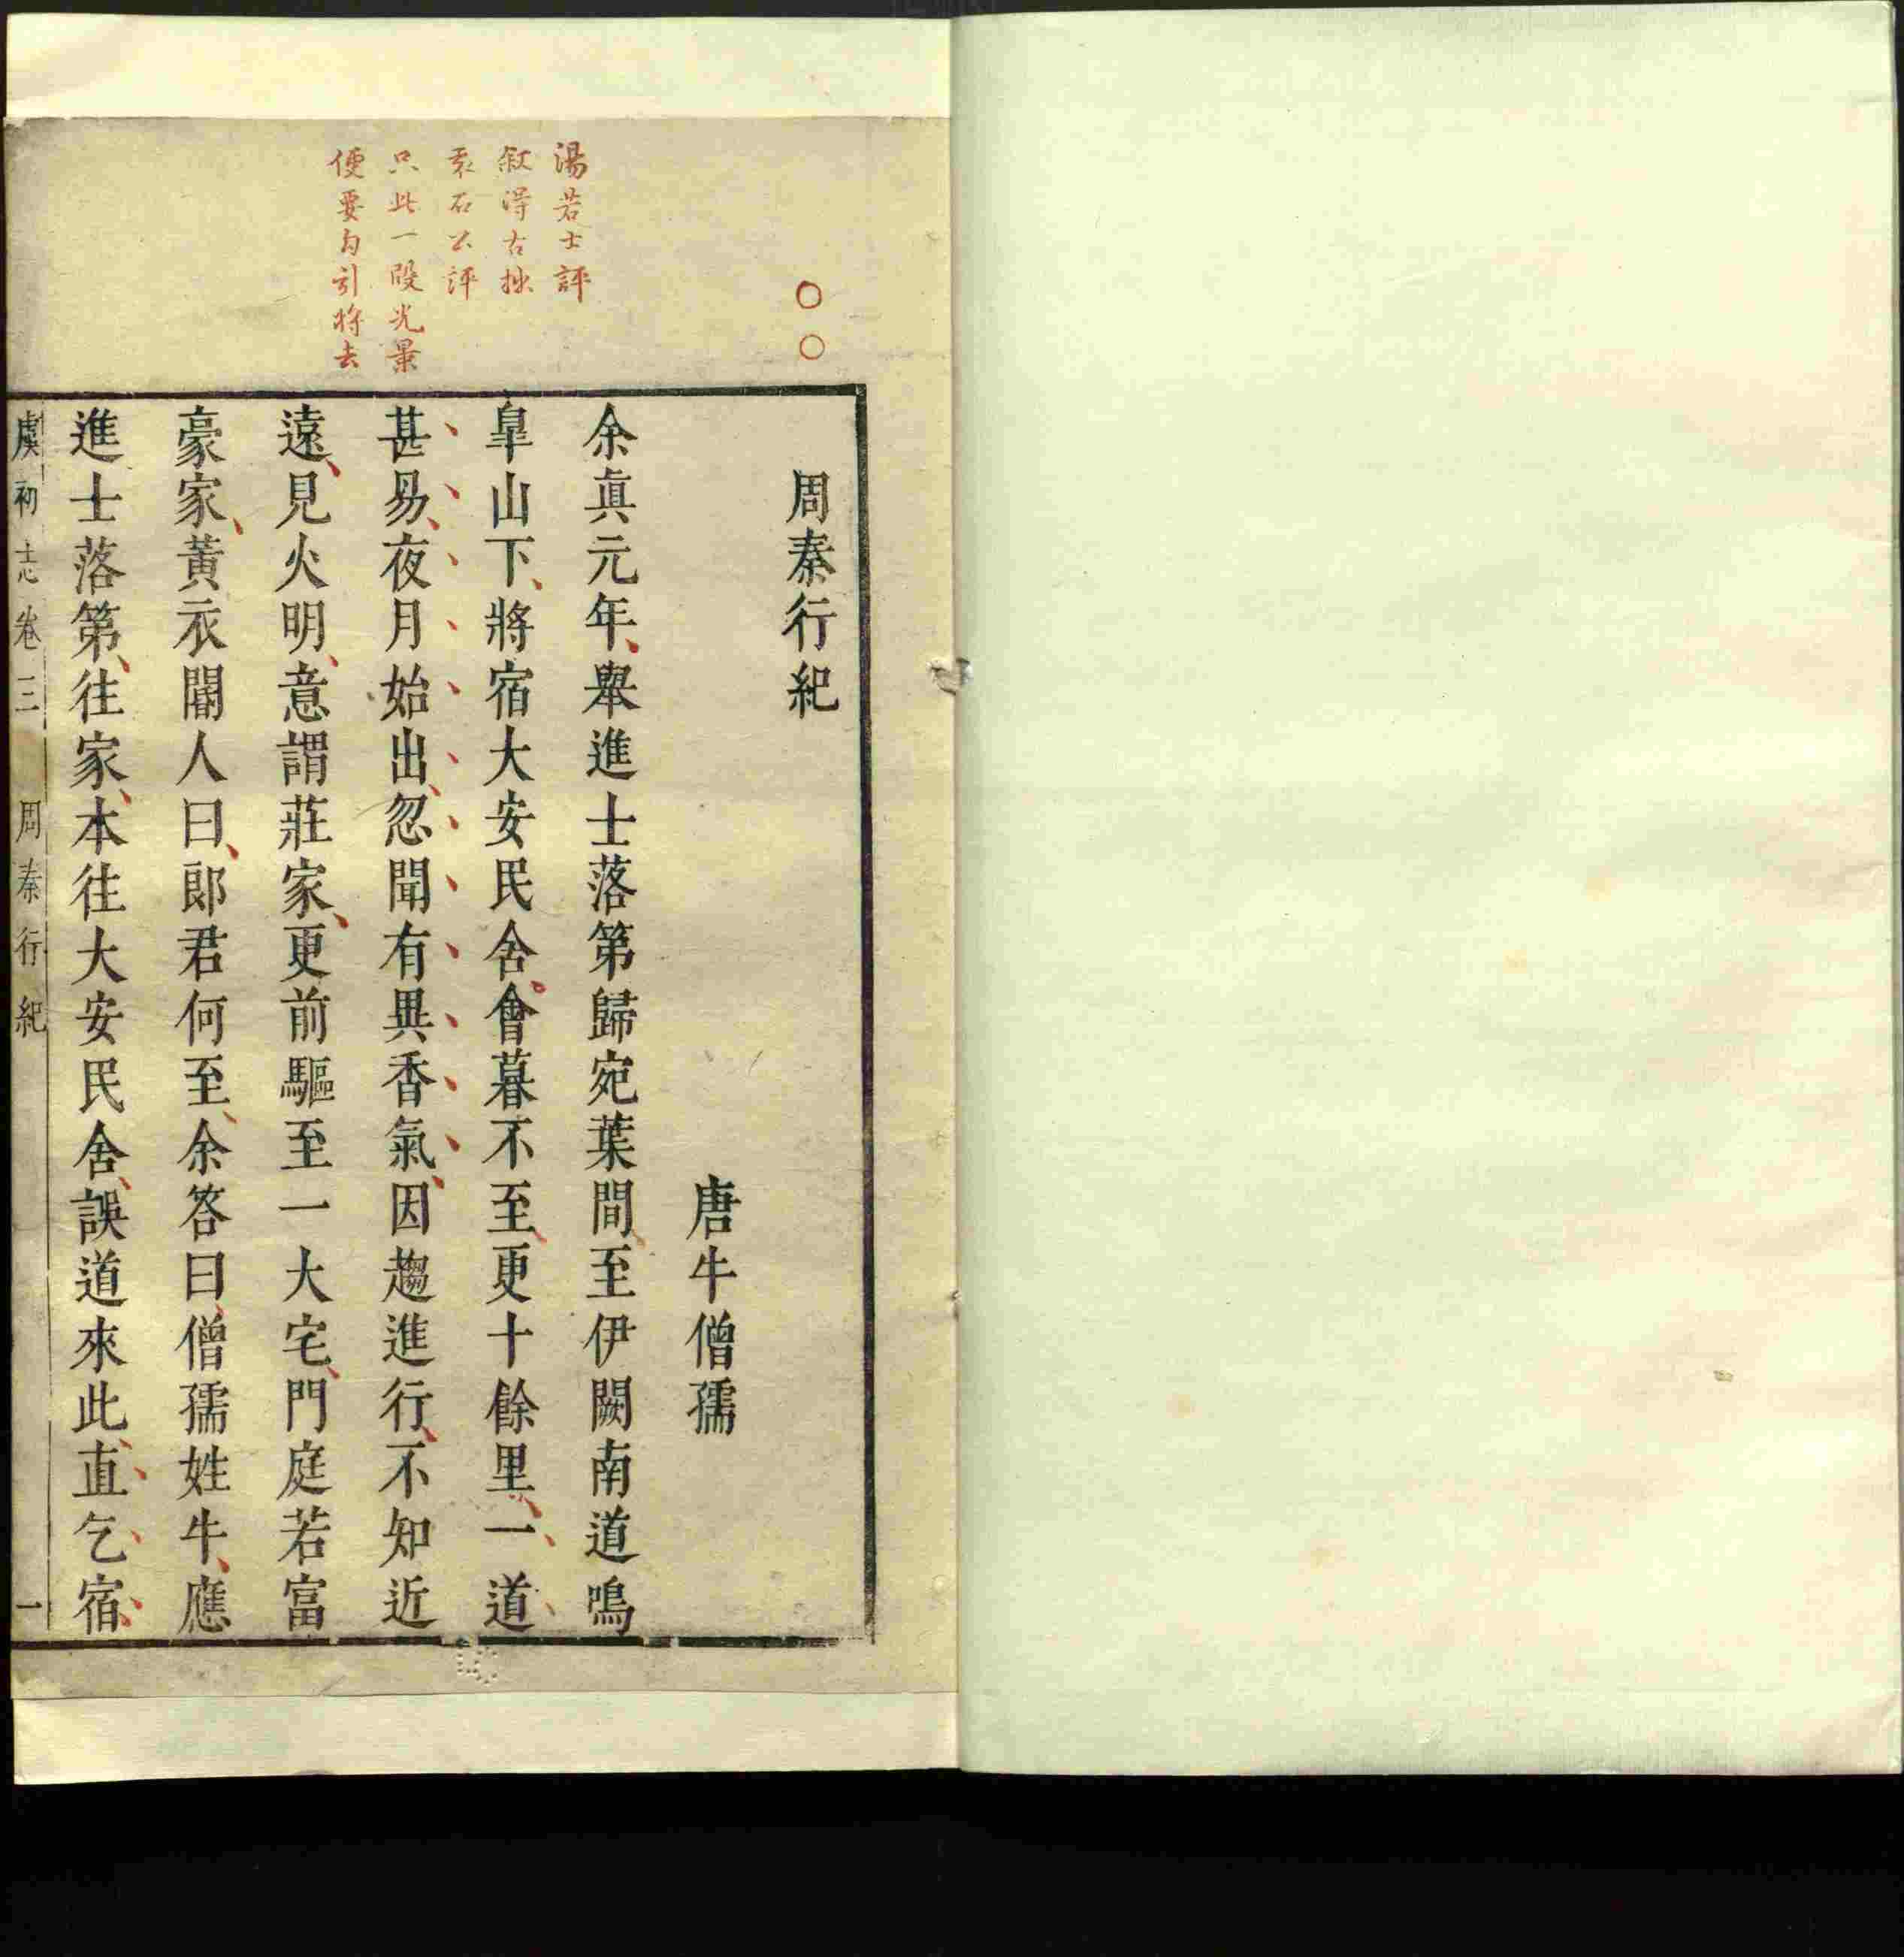 周秦行紀
唐牛僧孺
余眞元年、舉進士落第歸宛葉間、至伊闕南道鳴
臯山下、將宿大安民舍。會暮不至、更十餘里、一道
甚易、夜月始出、忽聞有異香氣、因趨進行、不知近
遠、見火明、意謂莊家、更前驅至一大宅、門庭若富
豪家、黃衣閽人曰、郎君何至、余答曰、僧孺姓牛、應
進士落第、往家、本往大安民舍、誤道來此、直乞宿、
湯若士評
叙得古拙
袁石公評
只此一段光景
便要勾引將去
虞初志卷三 周秦行紀 一